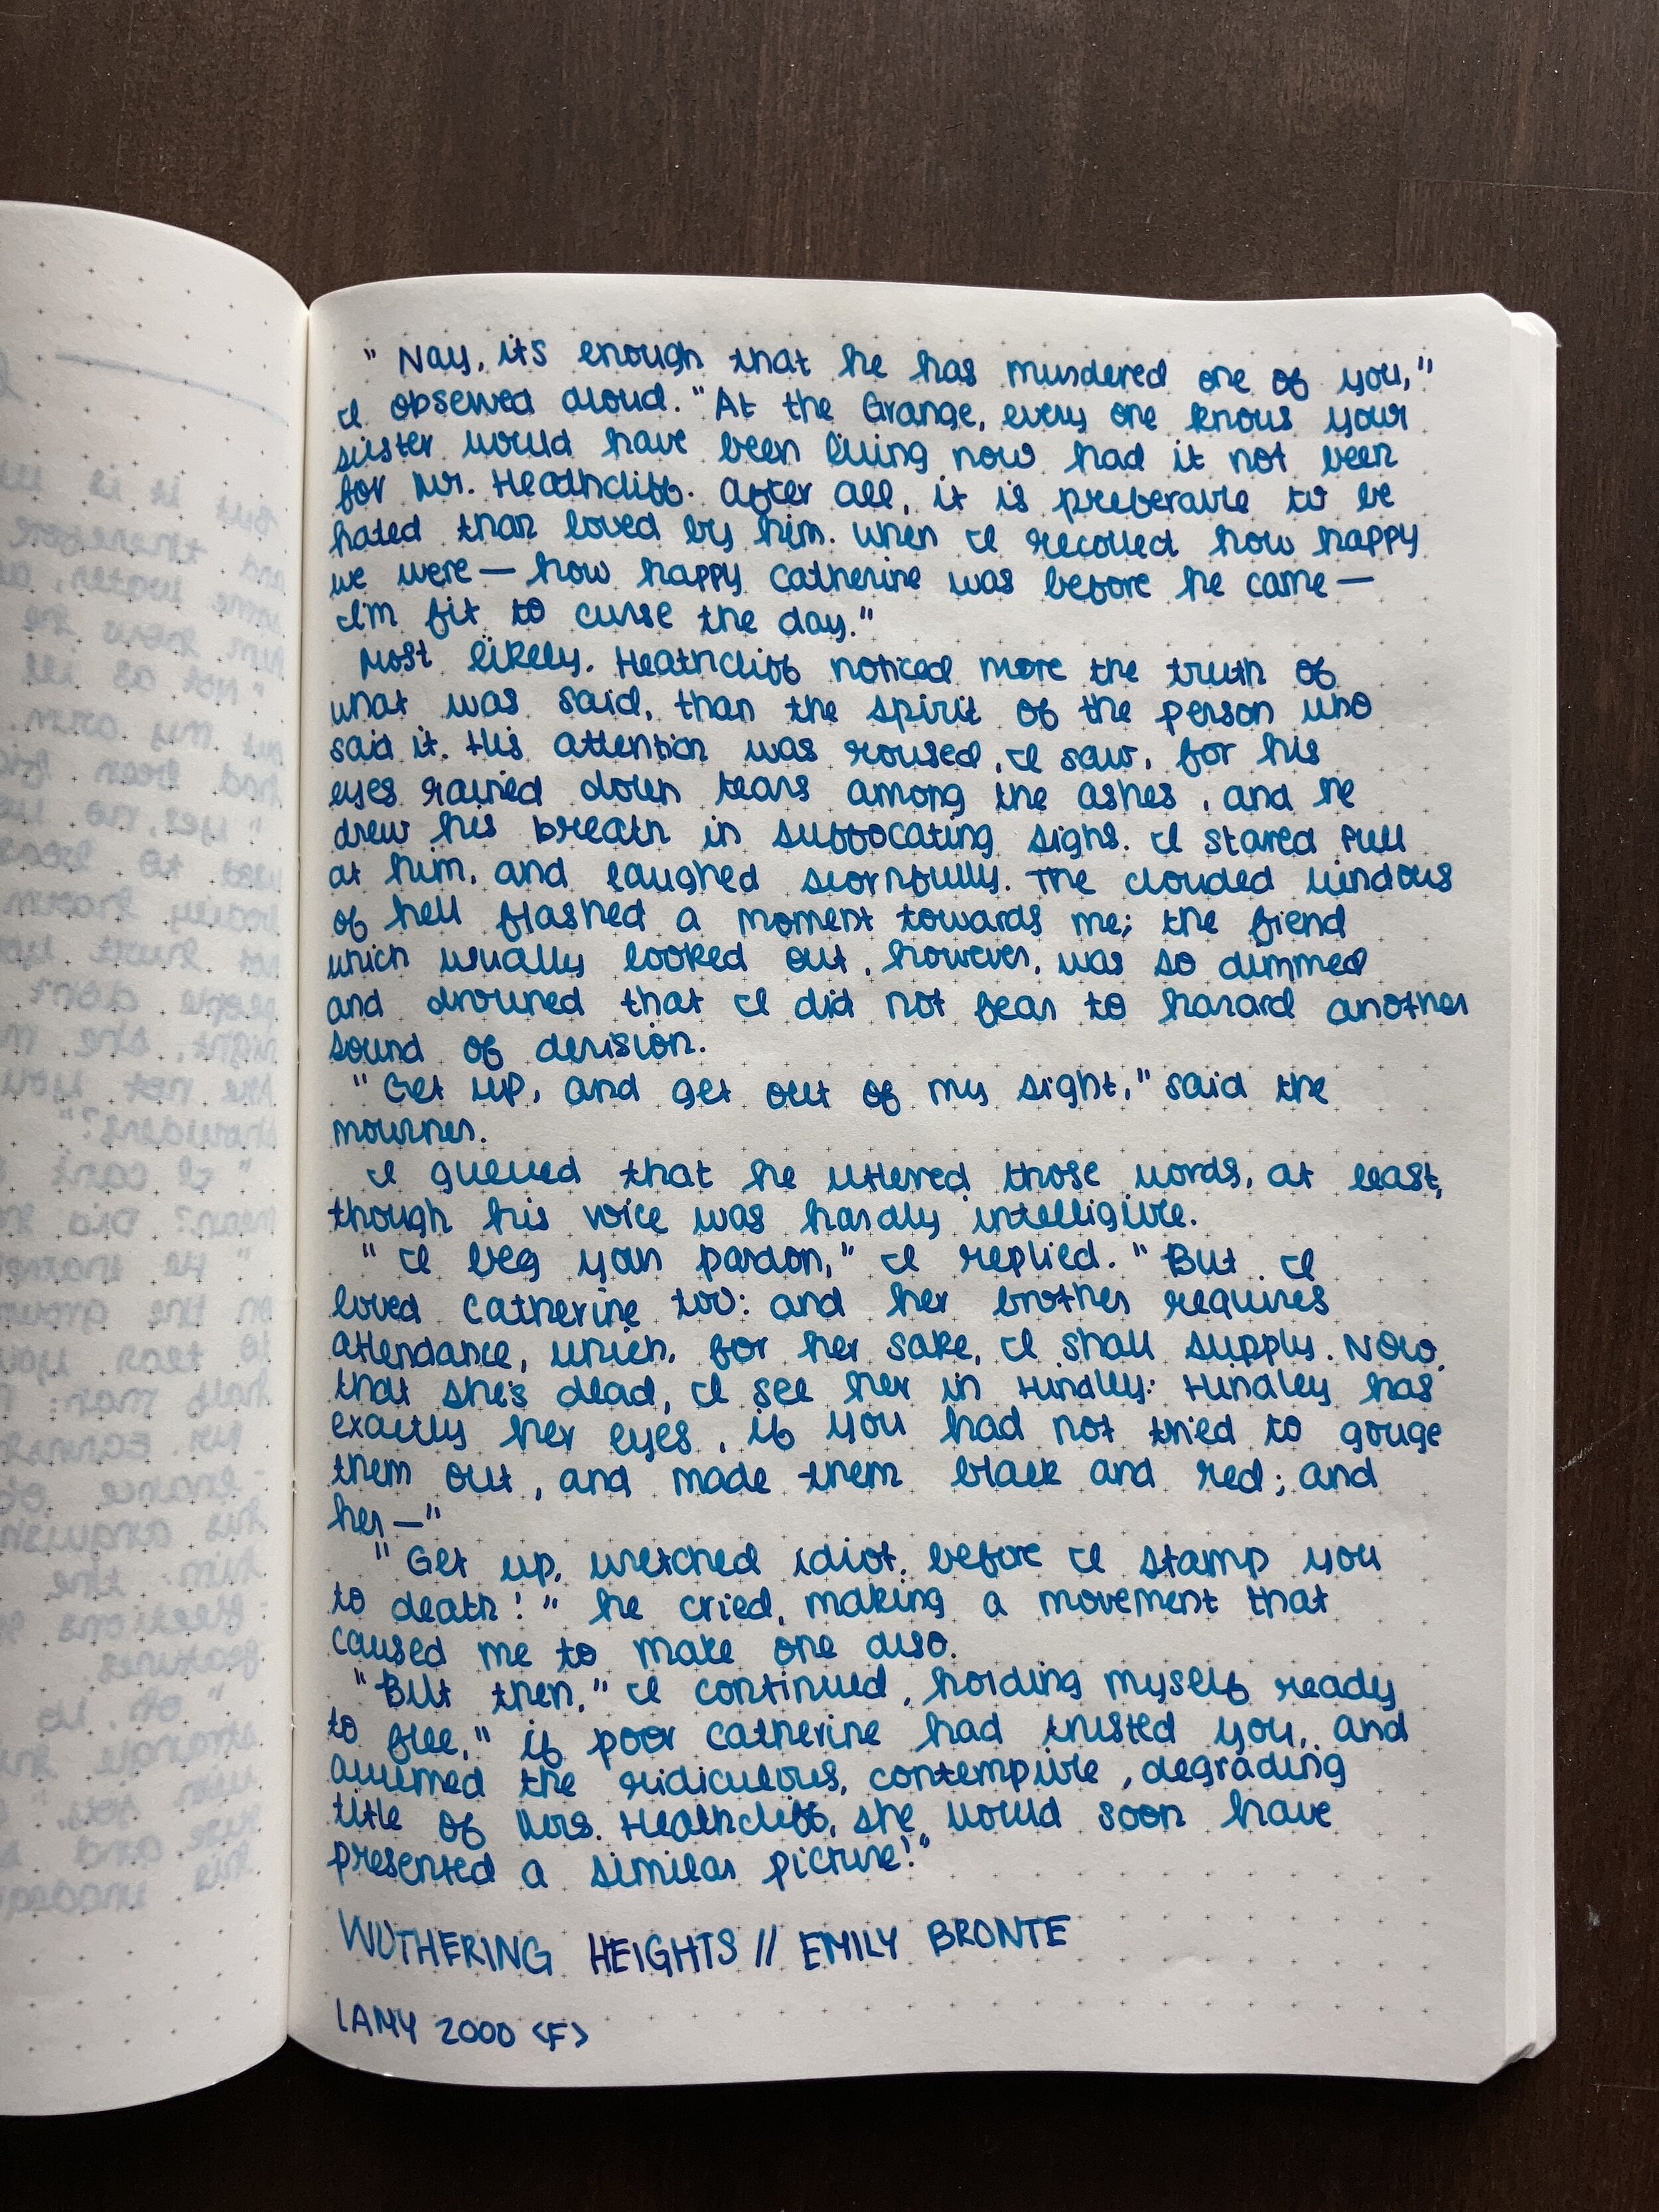 "Nay, it's enough that he has murdered one of you,"
I observed aloud. "At the Grange, every one knows your
sister would have been living now had it not been
for Mr. Heathcliff. After all, it is preferable to be
hated than loved by him. When I recollect how happy
we were — how happy Catherine was before he came —
I'm fit to curse the day."
Most likely, Heathcliff noticed more the truth of
what was said, than the spirit of the person who
said it. His attention was roused, I saw, for his
eyes rained down tears among the ashes, and he
drew his breath in suffocating sighs. I stared full
at him, and laughed scornfully. The clouded windows
of hell flashed a moment towards me; the fiend
which usually looked out, however, was so dimmed
and drowned that I did not fear to hazard another
sound of derision.
"Get up, and get out of my sight," said the
mourner.
I guessed that he uttered those words, at least,
though his voice was hardly intelligible.
"I beg your pardon," I replied. "But I
loved Catherine too: and her brother requires
attendance, which, for her sake, I shall supply. Now,
that she's dead, I see her in Hindley: Hindley has
exactly her eyes, if you had not tried to gouge
them out, and made them black and red; and
her —"
"Get up, wretched idiot, before I stamp you
to death!" he cried, making a movement that
caused me to make one also.
"But then," I continued, holding myself ready
to flee," if poor Catherine had trusted you, and
assumed the ridiculous, contemptible, degrading
title of Mrs. Heathcliff, she would soon have
presented a similar picture!"
WUTHERING HEIGHTS // EMILY BRONTE
LAMY 2000 <F>